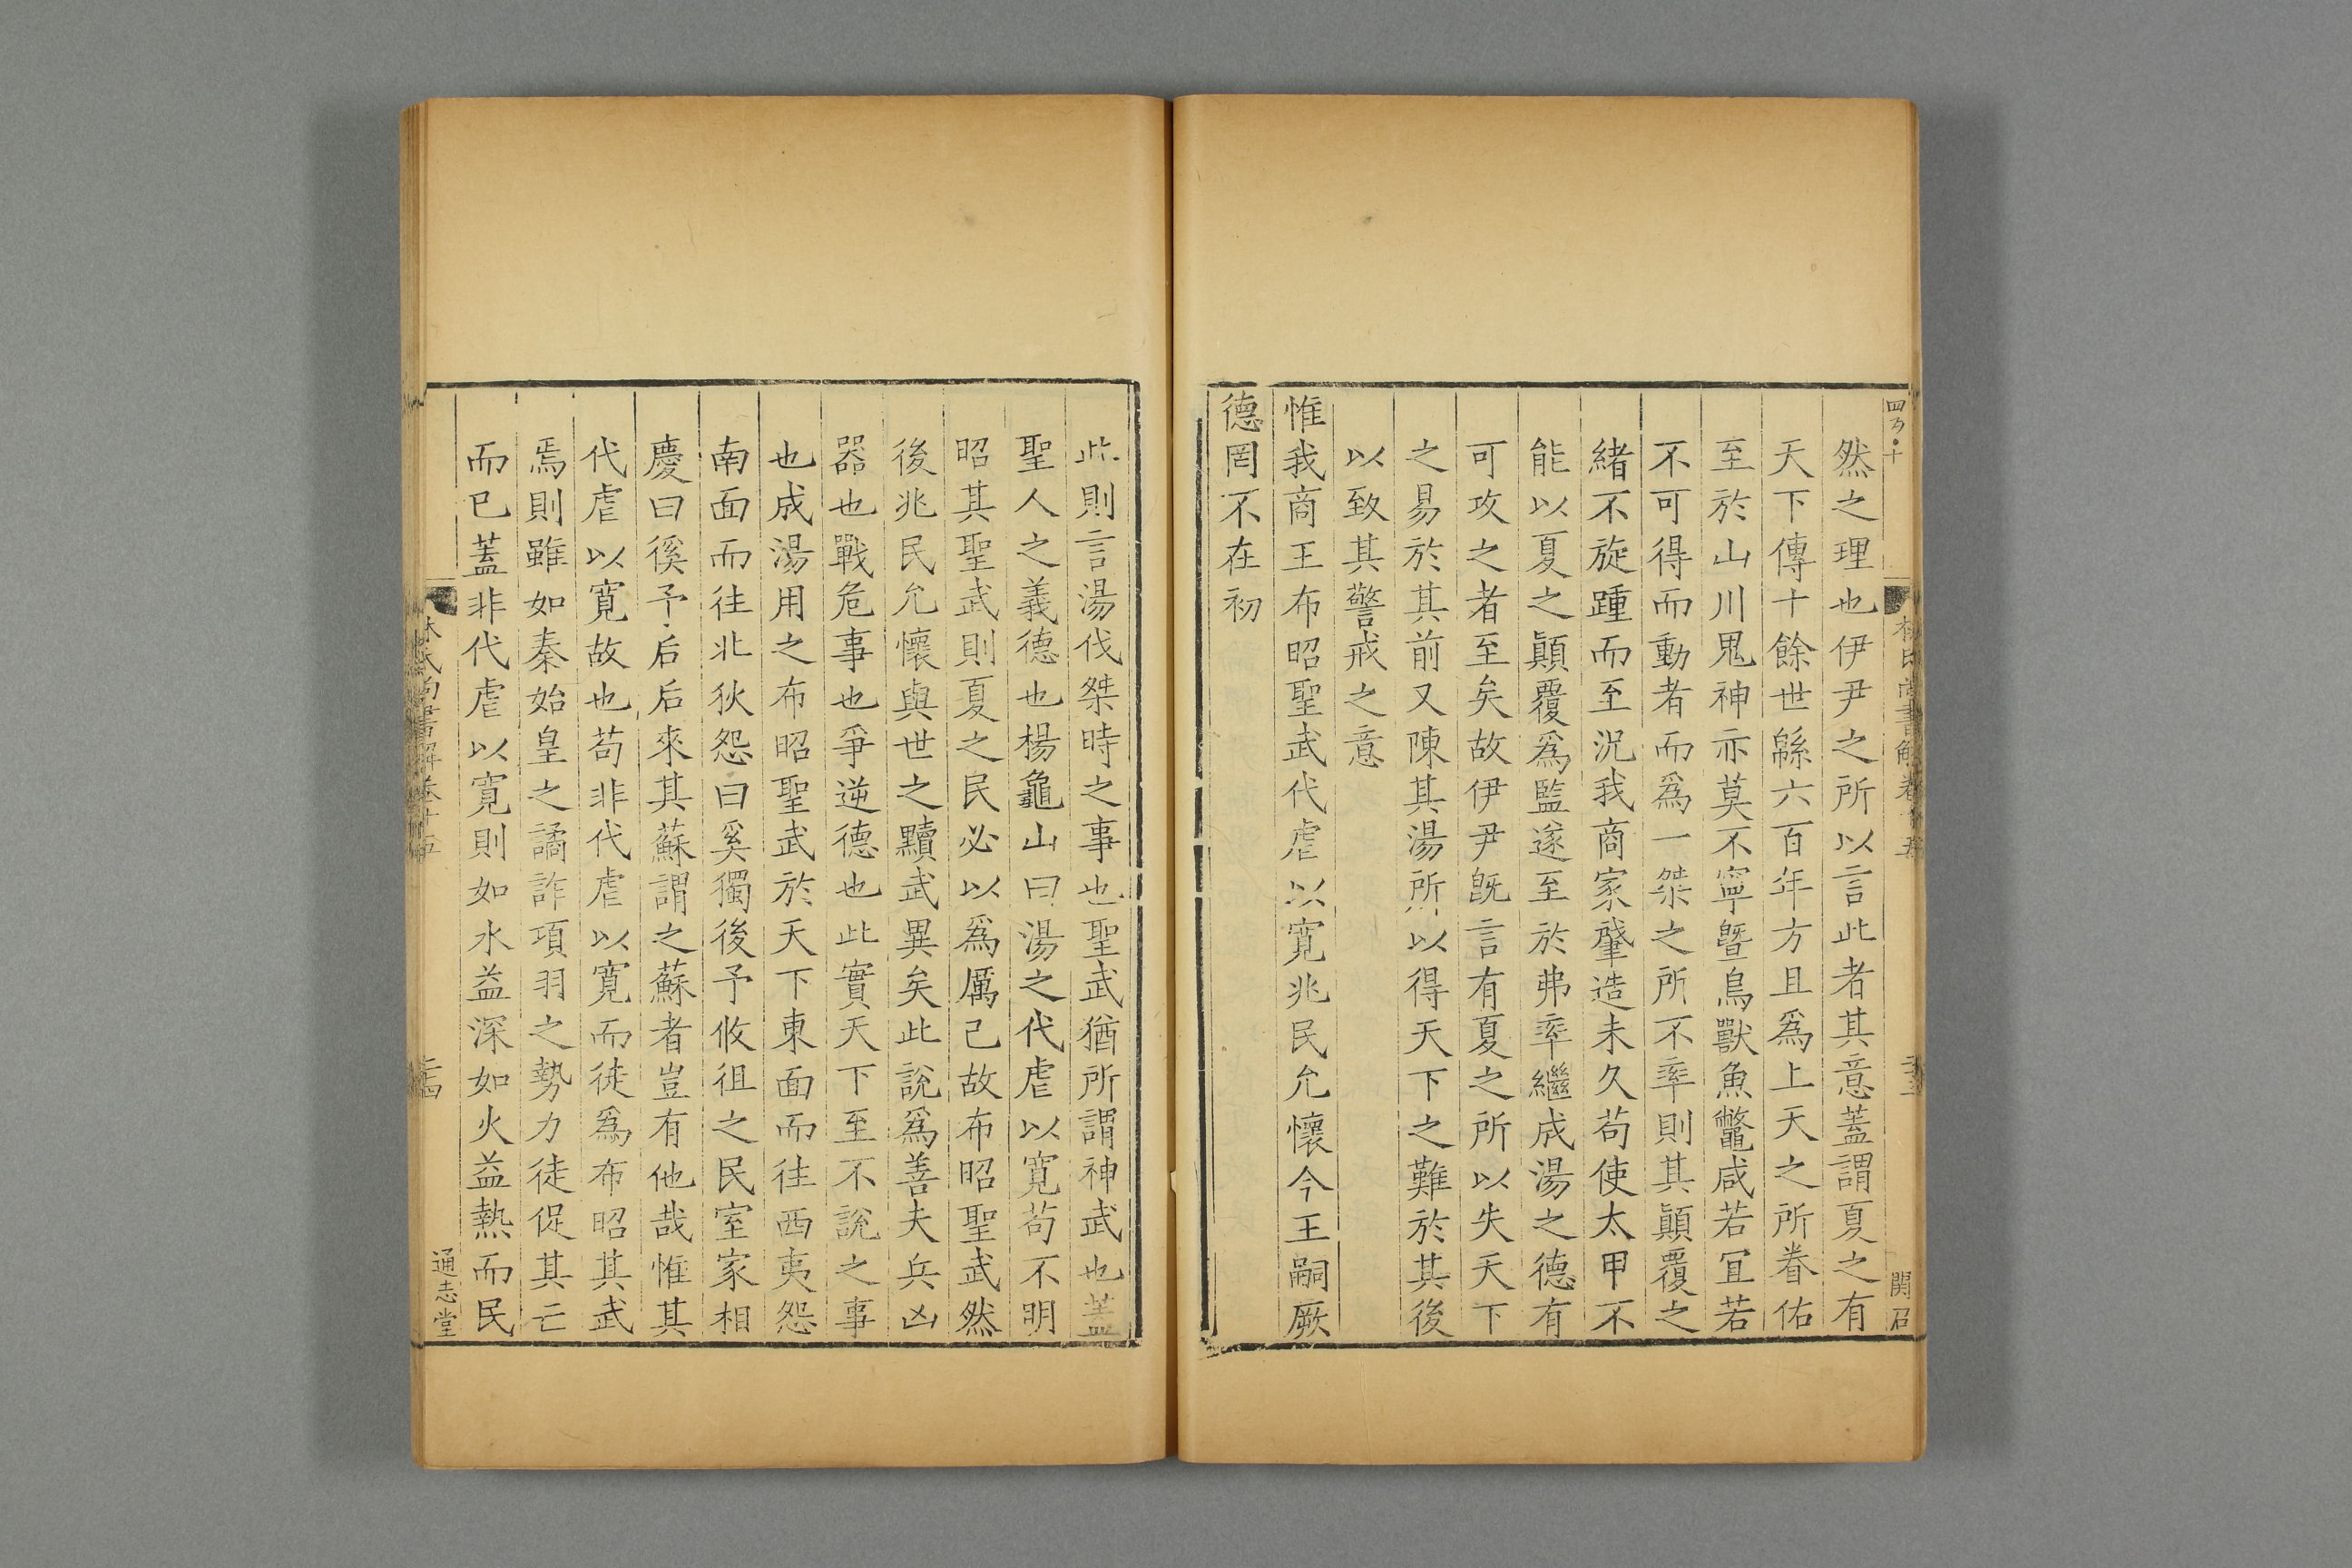 四百・十
林氏尚書解卷十五
二十三
關召
然之理也伊尹之所以言此者其意蓋謂夏之有
天下傳十餘世緜六百年方且爲上天之所眷佑
至於山川鬼神亦莫不寧曁鳥獸魚鼈咸若冝若
不可得而動者而爲一桀之所不率則其顚覆之
緒不旋踵而至況我商家肇造未久苟使太甲不
能以夏之顚覆爲監遂至於弗率繼成湯之德有
可攻之者至矣故伊尹旣言有夏之所以失天下
之易於其前又陳其湯所以得天下之難於其後
以致其警戒之意
惟我商王布昭聖武代虐以寛兆民允懷今王嗣厥
德罔不在初
此則言湯伐桀時之事也聖武猶所謂神武也蓋
聖人之義德也楊龜山曰湯之代虐以寛苟不明
昭其聖武則夏之民必以爲厲己故布昭聖武然
後兆民允懷與世之黷武異矣此說爲善夫兵凶
器也戰危事也爭逆德也此實天下至不說之事
也成湯用之布昭聖武於天下東面而往西夷怨
南面而往北狄怨曰奚獨後予攸徂之民室家相
慶曰徯予后后來其蘇謂之蘇者豈有他哉惟其
代虐以寛故也苟非代虐以寛而徒爲布昭其武
焉則雖如秦始皇之譎詐項羽之勢力徒促其亡
而已蓋非代虐以寛則如水益深如火益熱而民
林氏尚書解卷十五
二十四
通志堂